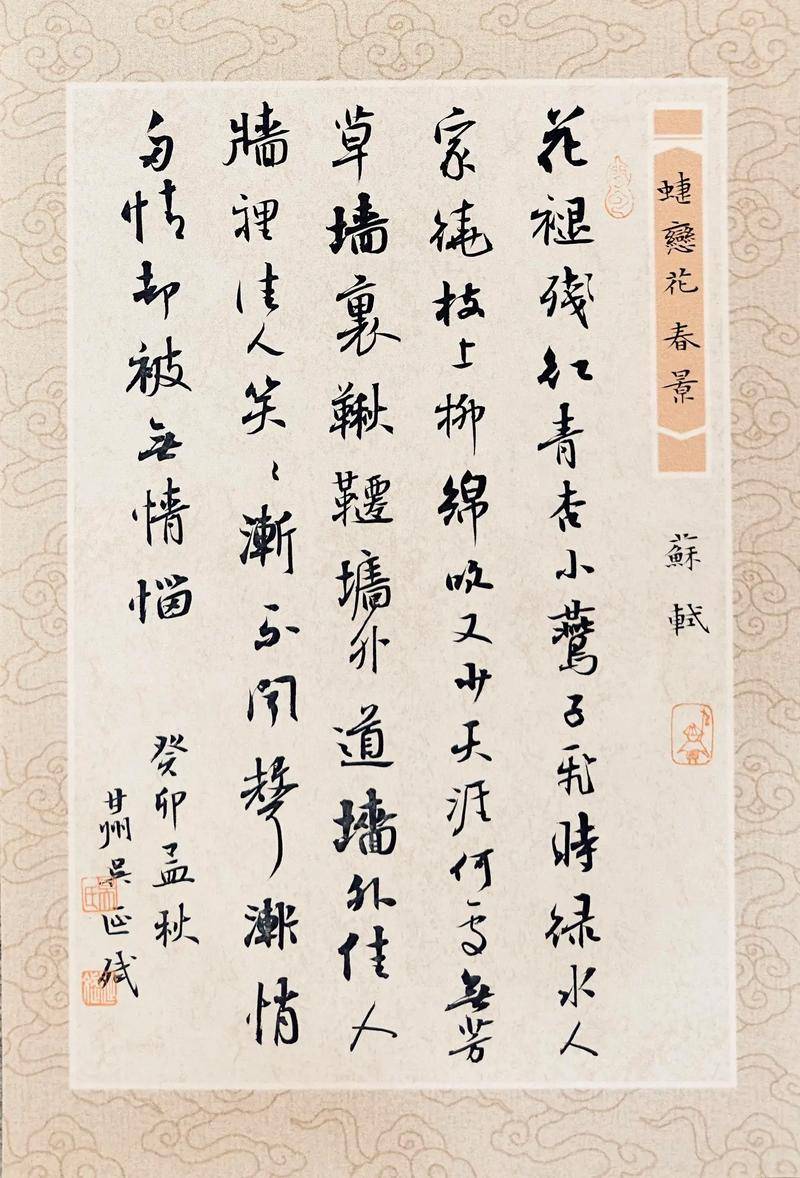 蜨戀花春景
蘇軾
花褪残红青杏小鷰子飛時绿水人
家绕枝上柳綿吹又少天涯何處無芳
草墙裏鞦韆墙外道墙外佳人
牆裡佳人笑〻漸不闻聲漸悄
多情却被無情惱
癸卯孟秋
甘州吳